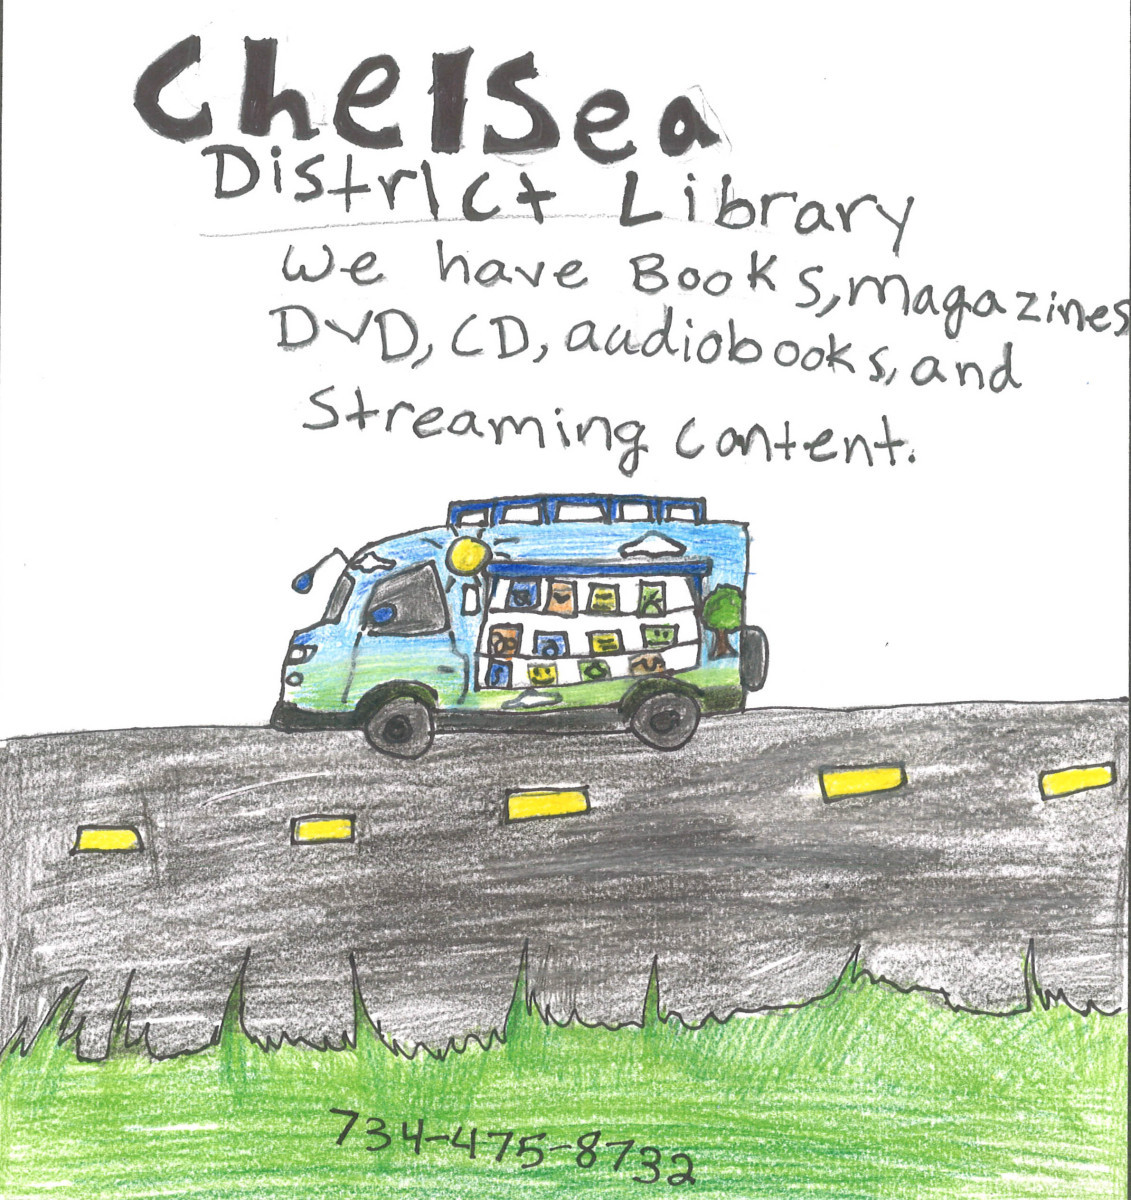 Chelsea
District Library
We have Books, magazines
DVD, CD, audiobooks, and
Streaming content.
734-475-8732